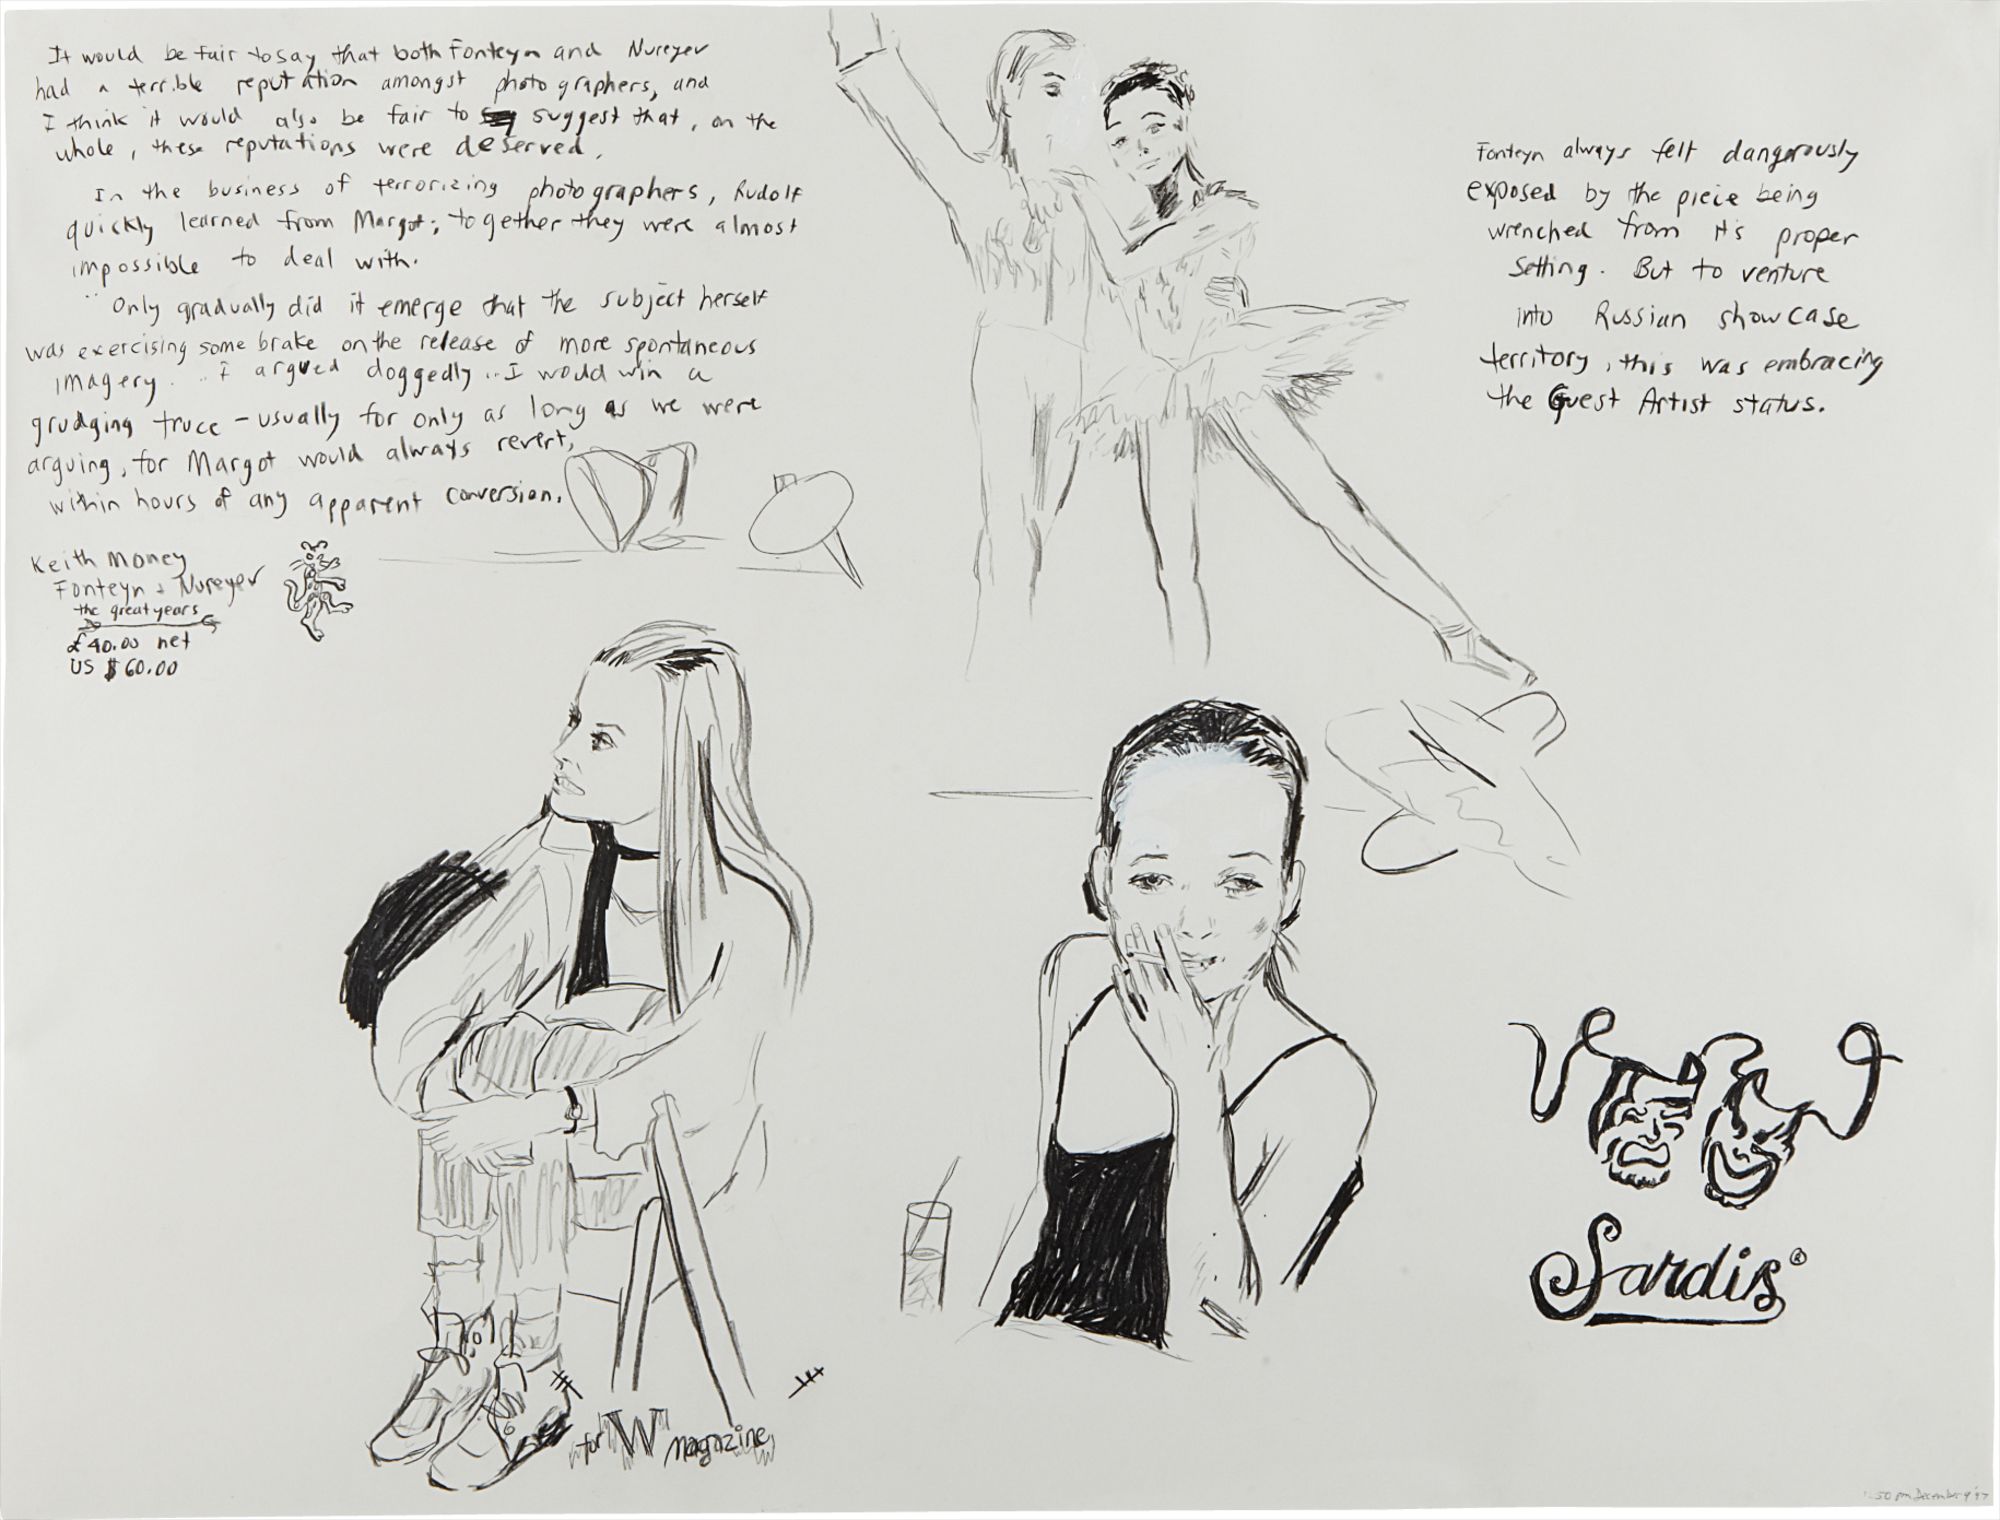 It would be fair to say that both Fonteyn and Nureyev
had a terrible reputation amongst photographers, and
I think it would also be fair to suggest that, on the
whole, these reputations were deserved.
In the business of terrorizing photographers, Rudolf
quickly learned from Margot; together they were almost
impossible to deal with.
Only gradually did it emerge that the subject herself
was exercising some brake on the release of more spontaneous
imagery... I argued doggedly... I would win a
grudging truce - usually for only as long as we were
arguing, for Margot would always revert,
within hours of any apparent conversion.
Keith Money
Fonteyn & Nureyev
the great years
£40.00 net
US $60.00
Fonteyn always felt dangerously
exposed by the piece being
wrenched from it's proper
setting. But to venture
into Russian showcase
territory, this was embracing
the Guest Artist status.
for W magazine
Sardis®
50 pm December 9 '97